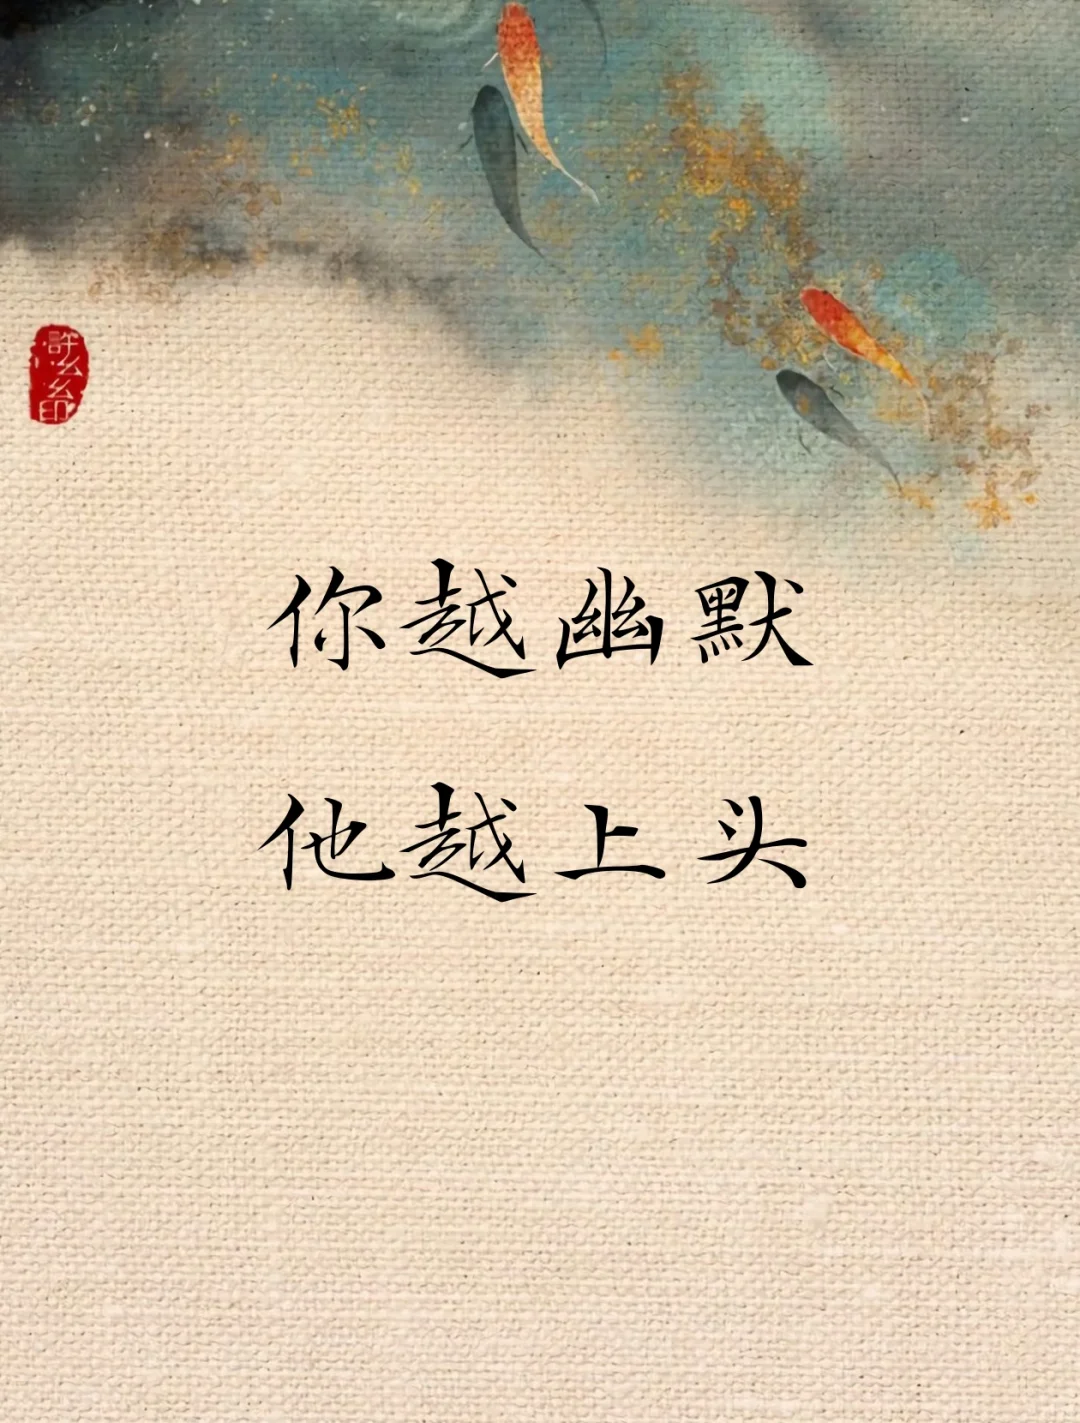 你越幽默
他越上头